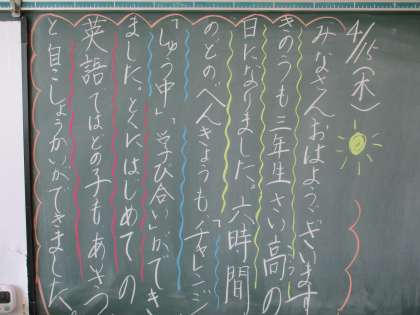 4/15(木)
みなさんおはようございます
きのうも三年生さい高の
日になりました。六時間
のどのべんきょうも、「チャレンジ」
「しゅう中」、「学び合い」ができ
ました。とくにはじめての
英語ではどの子もあいさつ
と自こしょうかいができました。